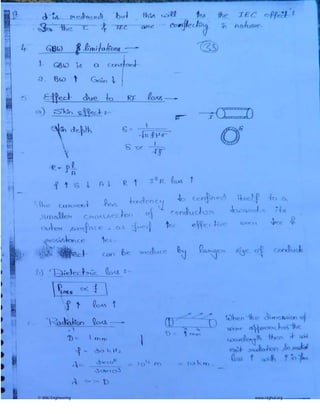 d is reduced, but this will ↑ the IEC effect.
So the I & IEC are conflicting in nature.
4. GBW & limitations
1. GBW is a constant
2. BW ↑ Gain ↓
5 Effect due to RF loss
a) Skin effect :-
Skin depth δ = 1 / √πfμσ
δ ∝ 1/√f
R = ρ l/A
f ↑ δ ↓ A ↓ R ↑ I²R loss ↑
The current has tendency to confined itself to a
smaller cross section of conductor towards its
outer surface, as freq ↑ the effective area ↓ses &
resistance ↑ses.
effect can be reduce by larger size of conductor
b) Dielectric loss :-
Ploss ∝ f
f ↑ loss ↑
c. Radiation loss
When the dimension of
wire approaches the
wavelength then it will
emit radiation
loss ↑ with ↑ in freq
D = 1 mm
f = 30 kHz
λ = 3×10⁸ / 30×10³ = 10⁴ m = 10 km.
λ >> D